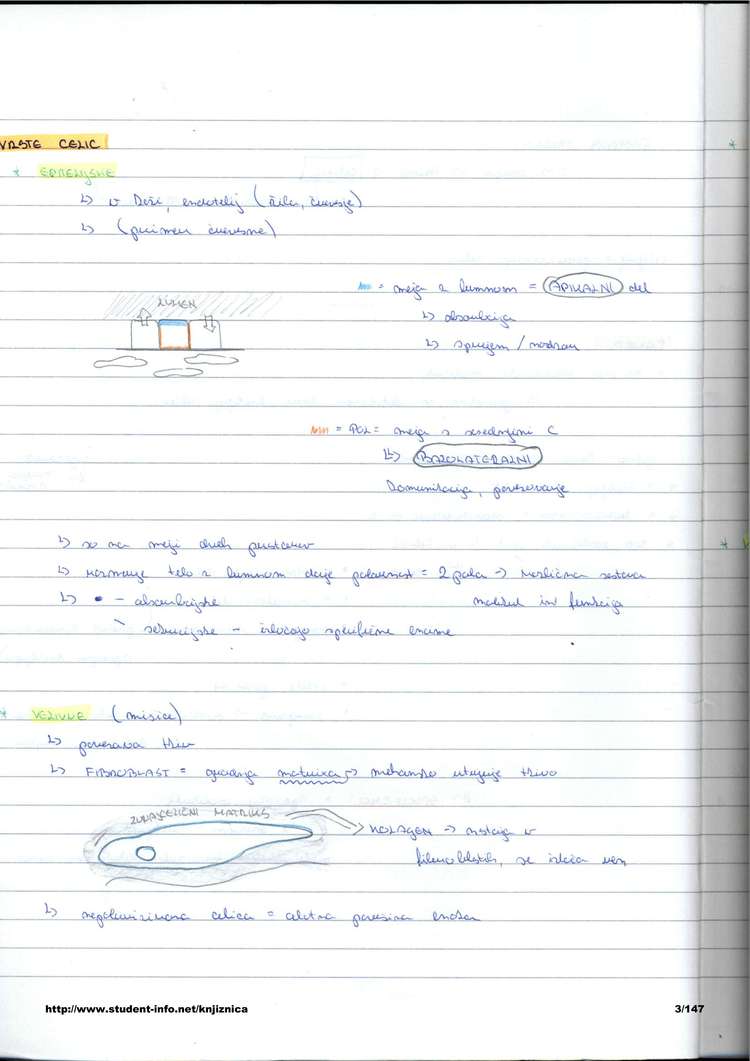 VRSTE CELIC
* EPITELIJSKE
↳ v koži, endotelij (žila, črevesje)
↳ (primer črevesne)
LUMEN
= meja z lumnom = APIKALNI del
↳ absorbcija
↳ sprejem /
= POL = meja s sosednjimi C
↳ BAZOLATERALNI
komunikacija, povezovanje
↳ so na meji dveh prostorov
↳ telo z lumnom daje polarnost = 2 pola → različna sestava
molekul in funkcija
↳ • - absorbcijske
\ sekrecijske - izločajo specifične encime
* VEZIVNE (mišice)
↳ povezava tkiv
↳ FIBROBLAST = gradnja matrixa → mehansko utrjuje tkivo
ZUNAJCELIČNI MATRIKS
KOLAGEN → nastaja v
fibroblastih, se izloča ven
↳ nepolarizirana celica = celotna površina enaka
http://www.student-info.net/knjiznica
3/147